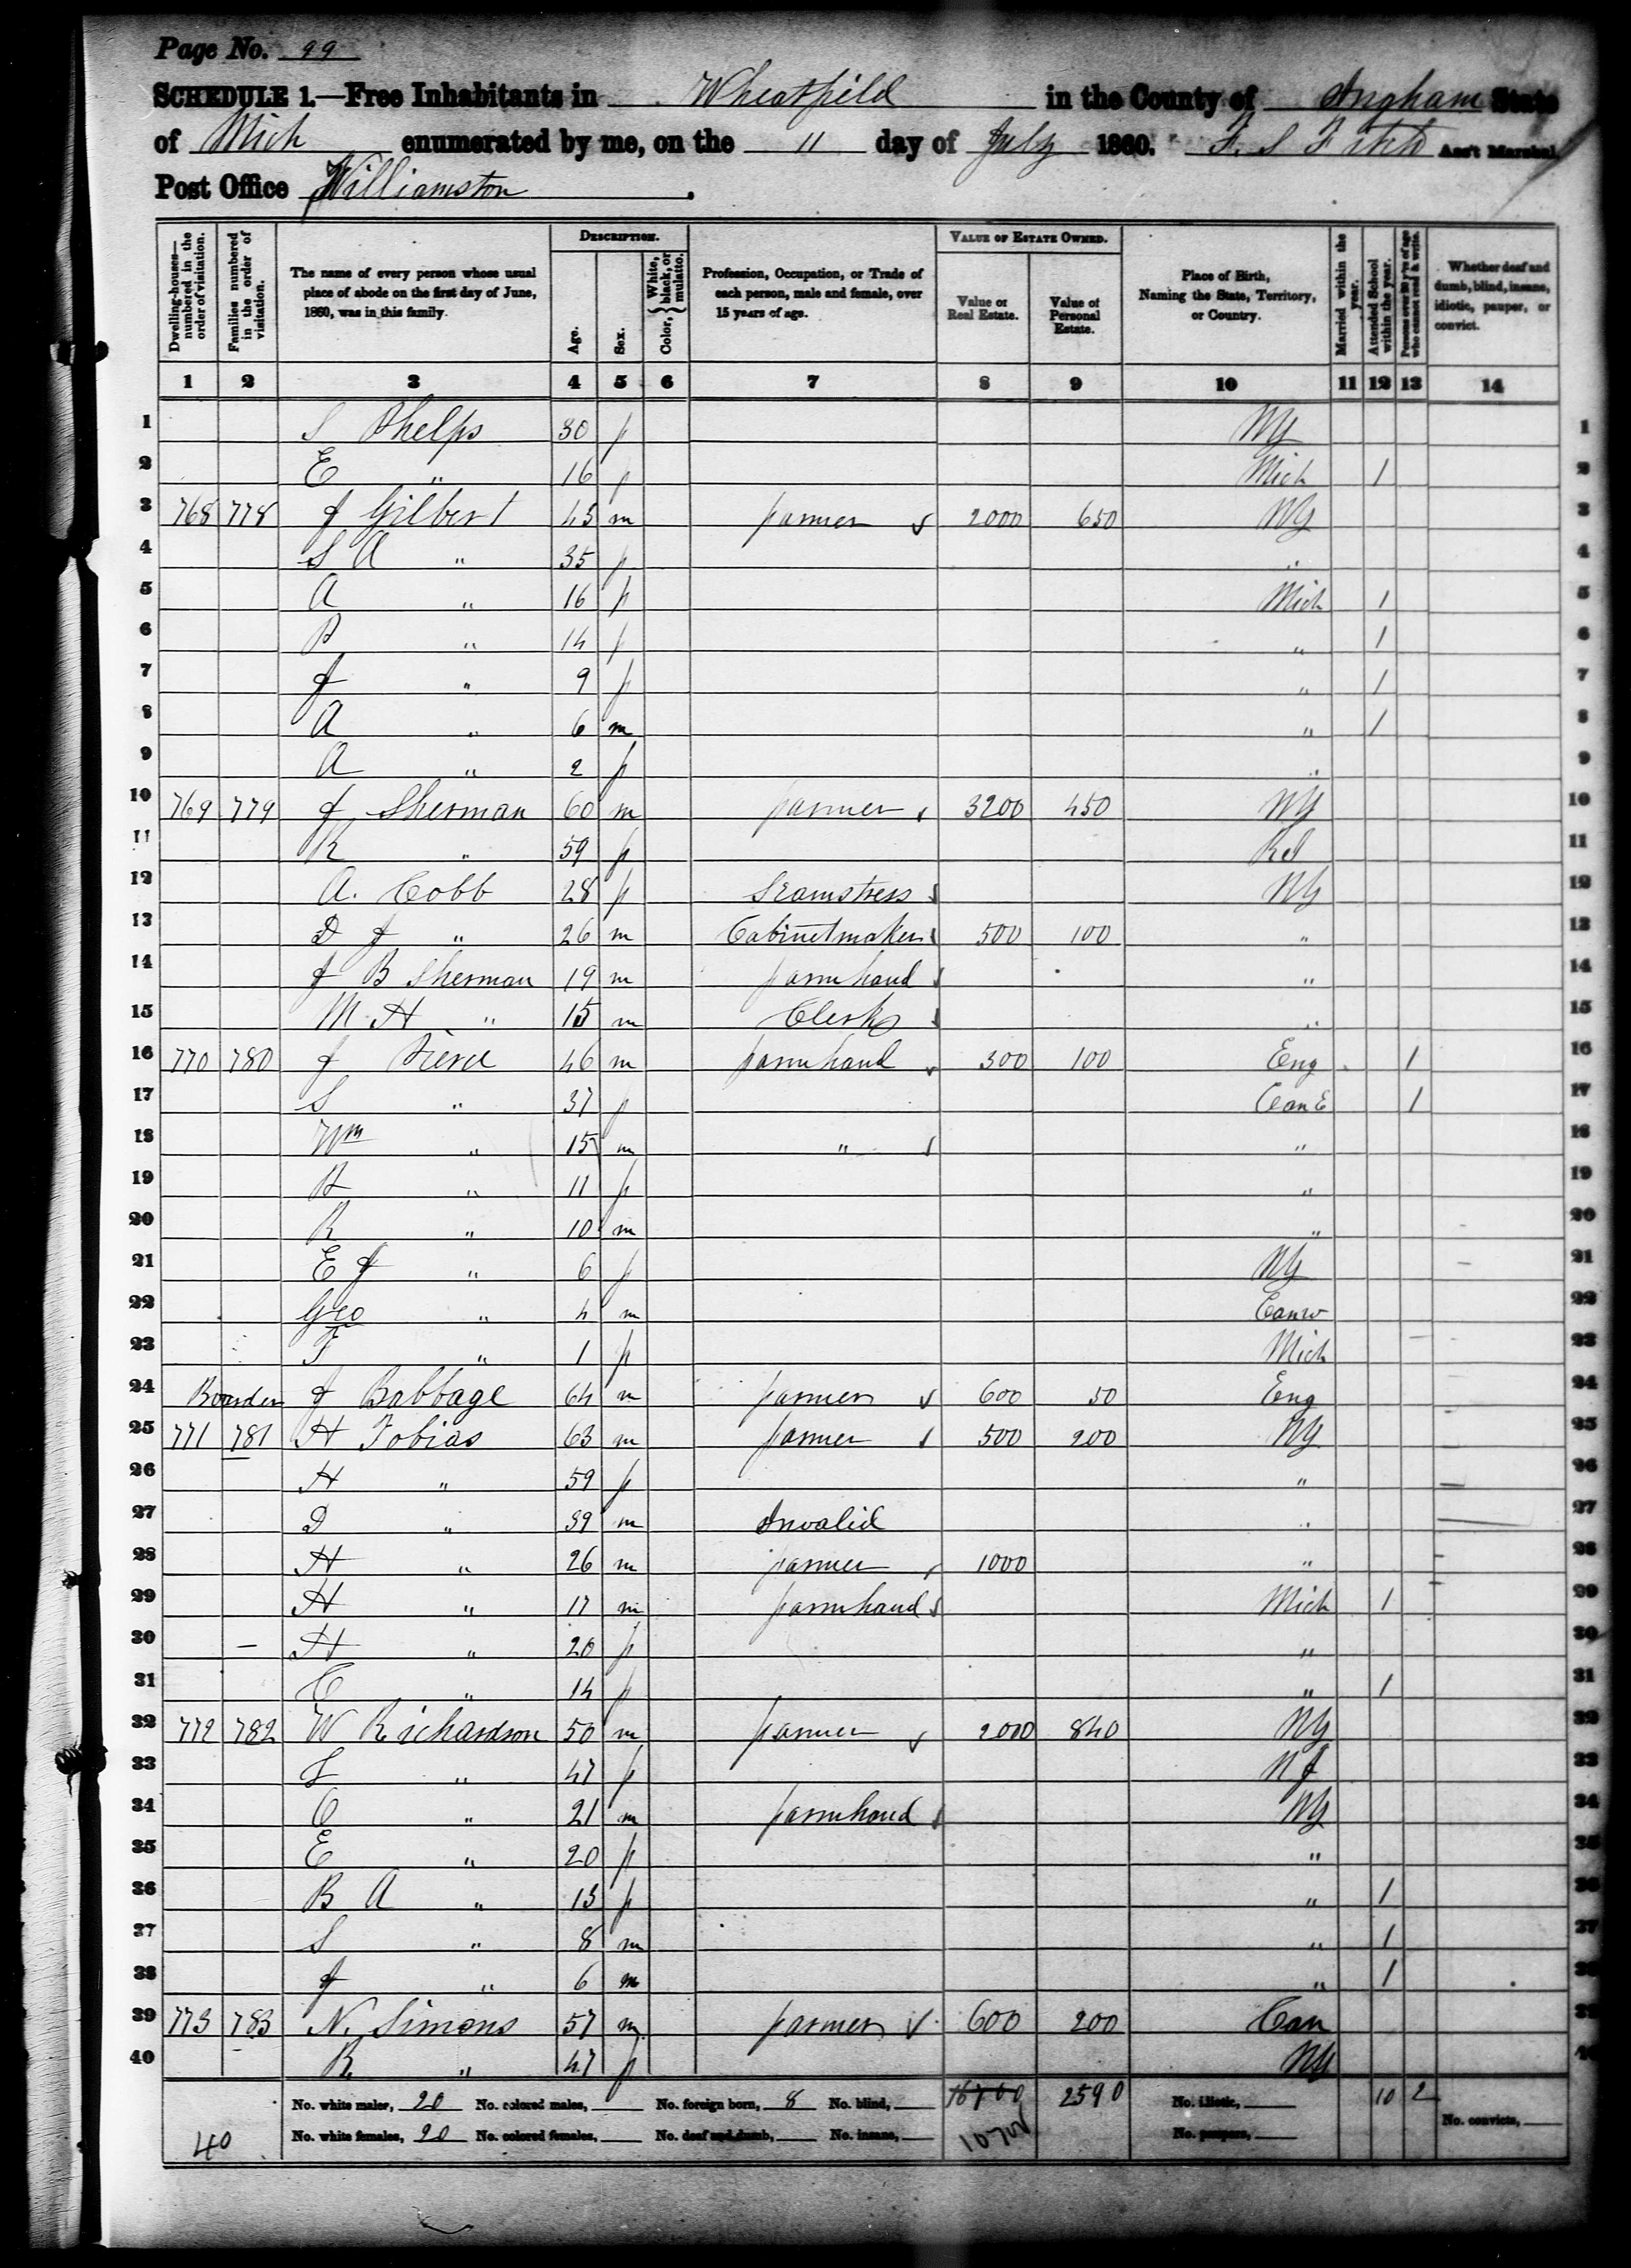 Page No. 99
SCHEDULE 1.—Free Inhabitants in Wheatfield in the County of Ingham State
of Mich enumerated by me, on the 11 day of July 1860. F. S Fitch Ass't Marshal.
Post Office Williamston.
Dwelling-houses—numbered in the order of visitation. Families numbered in the order of visitation. The name of every person whose usual place of abode on the first day of June, 1860, was in this family. DESCRIPTION. Age. Sex. Color, {White, black, or mulatto. Profession, Occupation, or Trade of each person, male and female, over 15 years of age. VALUE OF ESTATE OWNED. Value of Real Estate. Value of Personal Estate. Place of Birth, Naming the State, Territory, or Country. Married within the year. Attended School within the year. Persons over 20 y'rs of age who cannot read & write. Whether deaf and dumb, blind, insane, idiotic, pauper, or convict.
1 2 3 4 5 6 7 8 9 10 11 12 13 14
1 S Phelps 30 f NY 1
2 E " 16 f Mich 1 2
3 768 778 J Gilbert 45 m farmer 2000 650 NY 3
4 S A " 35 f " 4
5 A " 16 f Mich 1 5
6 B " 14 f " 1 6
7 J " 9 f " 1 7
8 A " 6 m " 1 8
9 A " 2 f " 9
10 769 779 J Sherman 60 m farmer 3200 450 NY 10
11 R " 59 f RI 11
12 A. Cobb 28 f Seamstress NY 12
13 D J " 26 m Cabinetmaker 500 100 " 13
14 J B Sherman 19 m farmhand " 14
15 M H " 15 m Clerk " 15
16 770 780 J Pierce 46 m farmhand 300 100 Eng 1 16
17 S " 37 f Can E 1 17
18 Wm " 15 m " " 18
19 " 11 f " 19
20 R " 10 m " 20
21 E J " 6 f NY 21
22 Geo " 4 m Canw 22
23 F " 1 f Mich 23
24 Boarder J Babbage 64 m farmer 600 50 Eng 24
25 771 781 H Tobias 63 m farmer 500 200 NY 25
26 H " 59 f " 26
27 D " 39 m Invalid " 27
28 H " 26 m farmer 1000 " 28
29 H " 17 m farmhand Mich 1 29
30 H " 20 f " 30
31 C " 14 f " 1 31
32 772 782 W Richardson 50 m farmer 2000 840 NY 32
33 L " 47 f NJ 33
34 C " 21 m farmhand NY 34
35 E " 20 f " 35
36 B A " 13 f " 1 36
37 S " 8 m " 1 37
38 J " 6 m " 1 38
39 773 783 N. Simons 57 m farmer 600 200 Can 39
40 R " 47 f NY 40
No. white males, 20 No. colored males, No. foreign born, 8 No. blind, 16700 2590 No. idiotic, 10 2
40 No. white females, 20 No. colored females, No. deaf and dumb, No. insane, 10700 No. paupers, No. convicts,